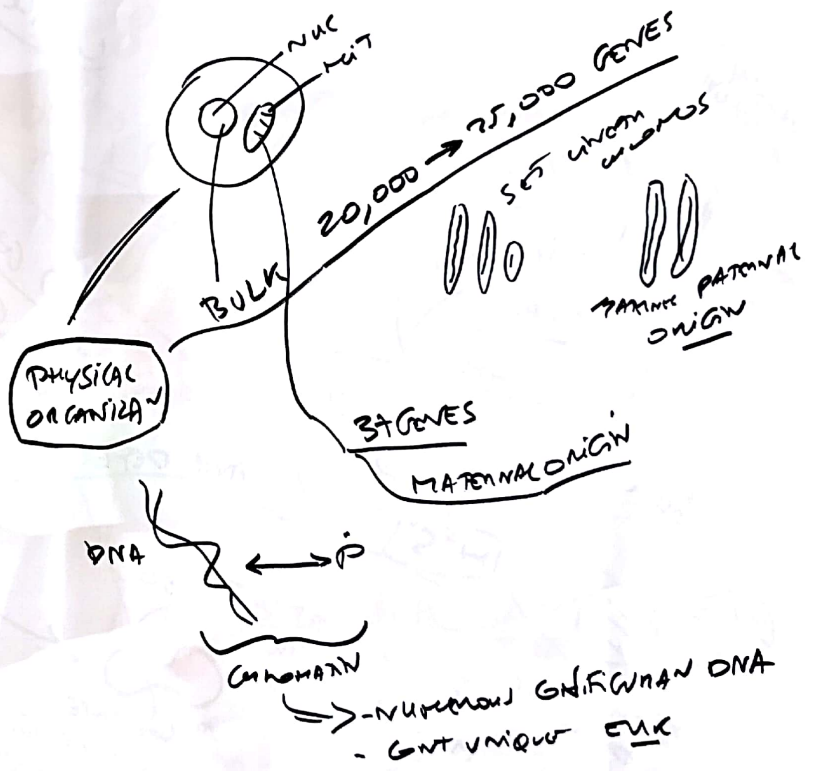 NUC
MIT
20,000 → 25,000 GENES
SET LINEAR
CHROMOS
BULK
PATERNAL
ORIGIN
PHYSICAL
ORGANIZAN
37 GENES
MATERNAL ORIGIN
DNA ↔ P
CHROMATIN
- NUMEROUS CONFIGURAN DNA
- CONT UNIQUE EUK